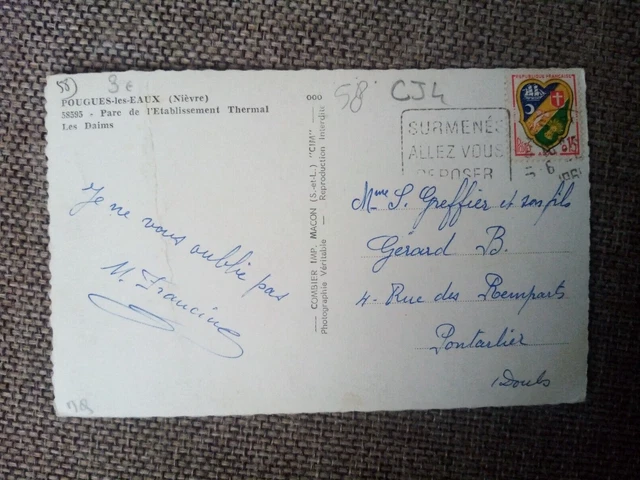 58) 3€
POUGUES-les-EAUX (Nièvre)
58595 - Parc de l'Etablissement Thermal
Les Daims
000
58 CJ4
SURMENÉS
ALLEZ VOUS
REPOSER
REPUBLIQUE FRANÇAISE
Je ne vous oublie pas
M. Francine
COMBIER IMP. MACON (S.-et-L.) "CIM"
Photographie Véritable - Reproduction Interdite
Mme S. Greffier et son fils
Gérard B.
4 - Rue des Remparts
Pontarlier
Doubs